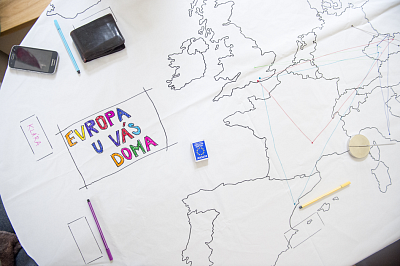 EVROPA
U VÁS
DOMA
KLÁRA